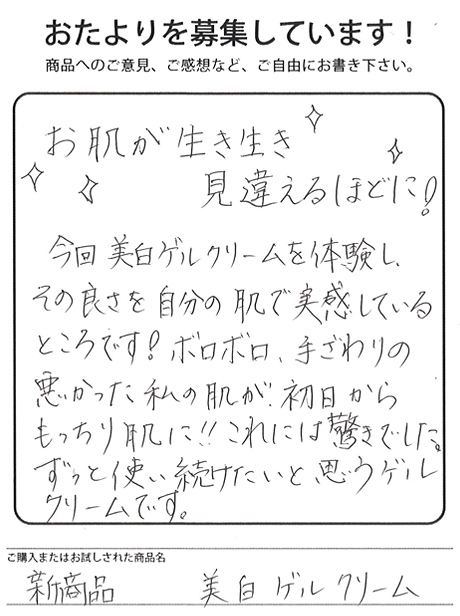 おたよりを募集しています！
商品へのご意見、ご感想など、ご自由にお書き下さい。
お肌が生き生き
見違えるほどに！
今回美白ゲルクリームを体験し、
その良さを自分の肌で実感している
ところです！ボロボロ、手ざわりの
悪かった私の肌が、初日から
もっちり肌に！！これには驚きでした。
ずっと使い続けたいと思うゲル
クリームです。
ご購入またはお試しされた商品名
新商品 美白ゲルクリーム